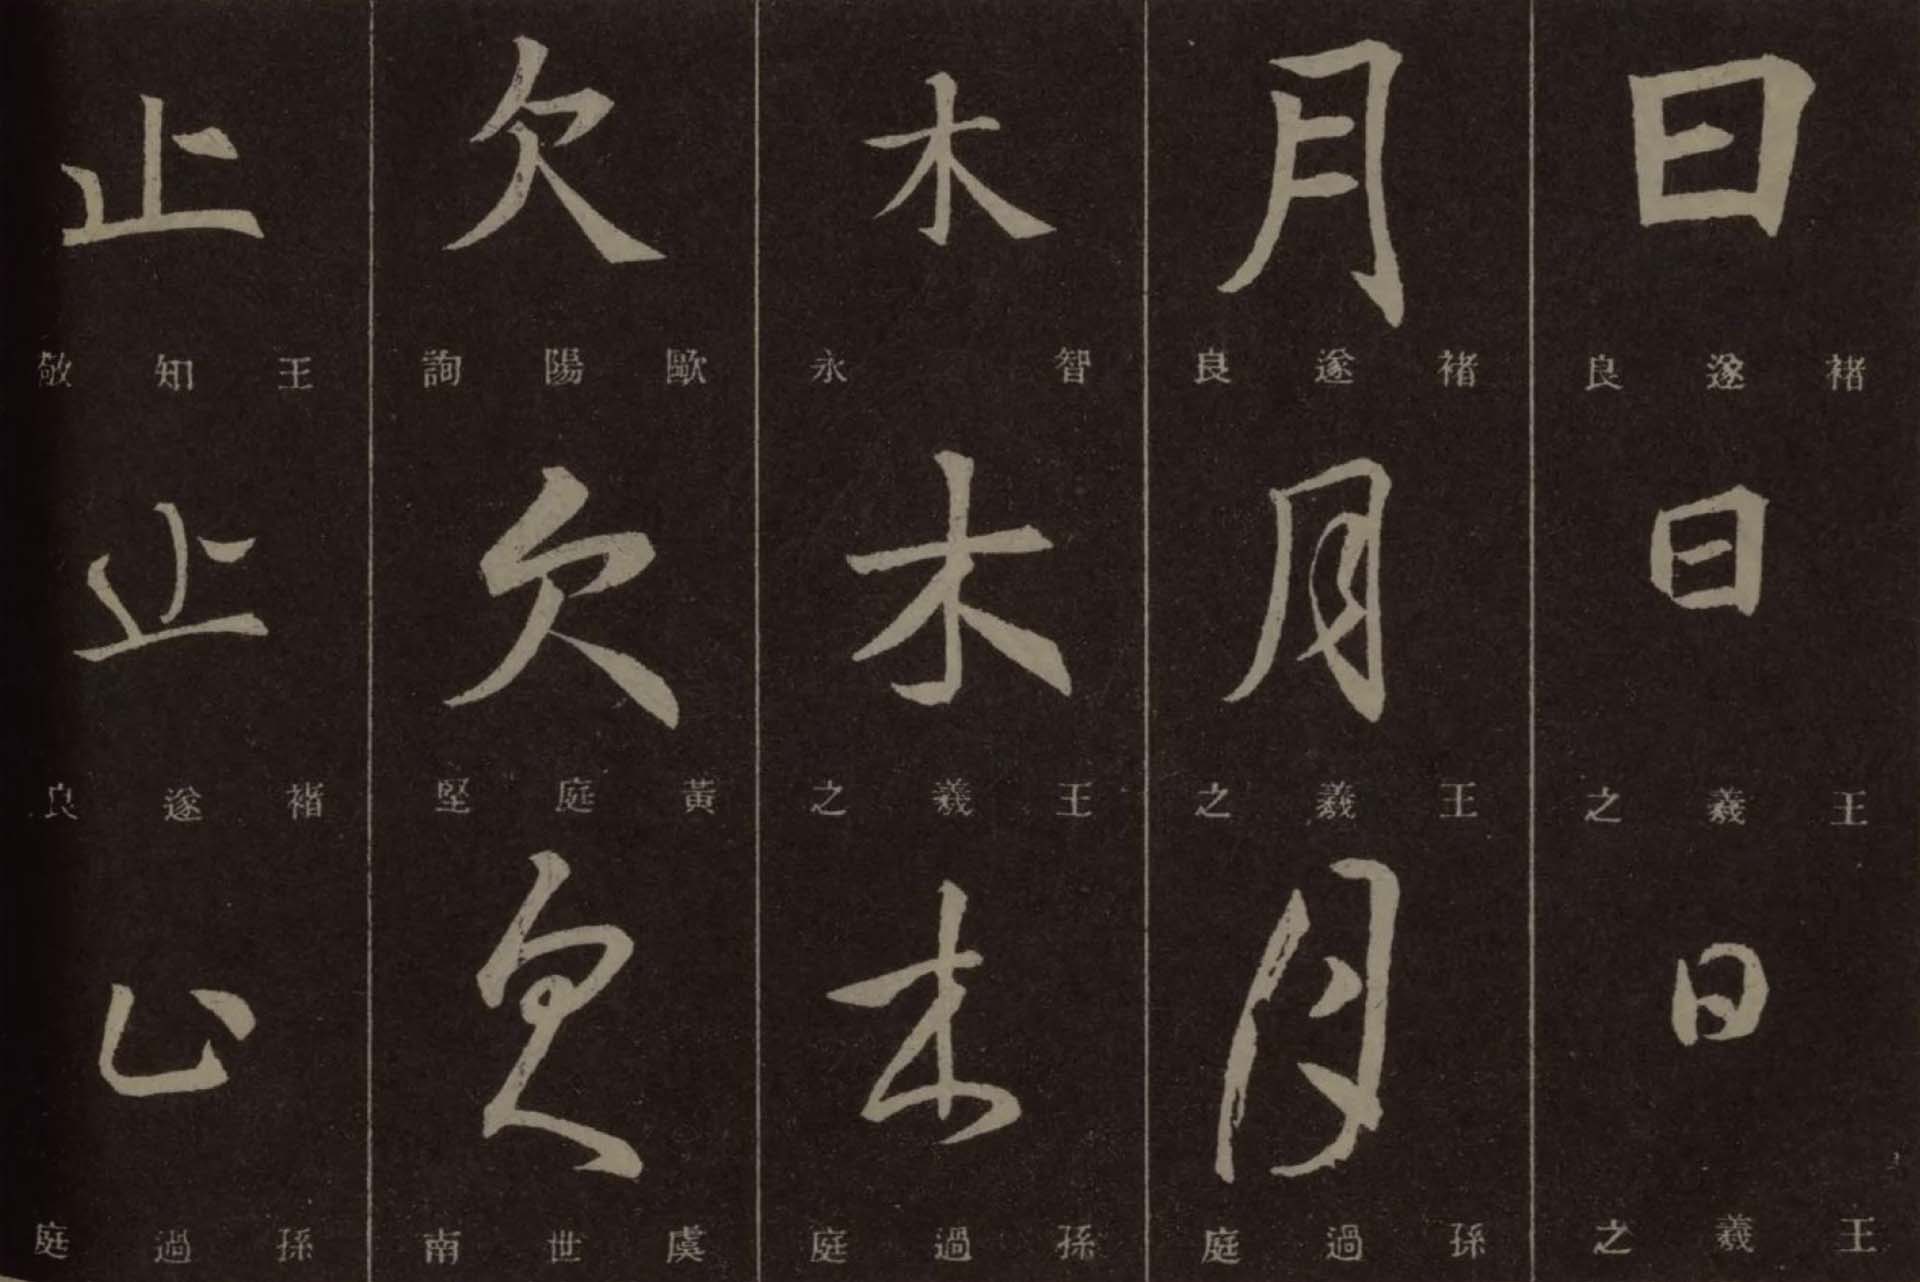 日
褚遂良
日
王羲之
日
王羲之
月
褚遂良
月
王羲之
月
孫過庭
木
智永
木
王羲之
木
孫過庭
欠
歐陽詢
欠
黃庭堅
欠
虞世南
止
王知敬
止
褚遂良
止
孫過庭